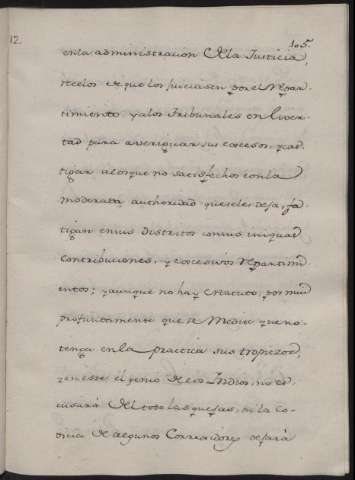 12.
105.
en la administracion de la Justicia,
recelos de que los juiciasen por el Repar-
timiento y a los Tribunales en liver-
tad para averiguar sus excesos, y cas-
tigar a los que no satisfechos con la
moderata authoridad que se les deja, fa-
tigan en sus distritos con sus iniquas
contribuciones, y excesivos Repartimi-
entos; y aunque no hay estatuto, por mui
profundamente que se Medite, que no
tenga en la practica sus tropiezos,
y en este el genio de los Indios, no es-
cusará del todo las quejas, ni la co-
dicia de algunos Corregidores dejará